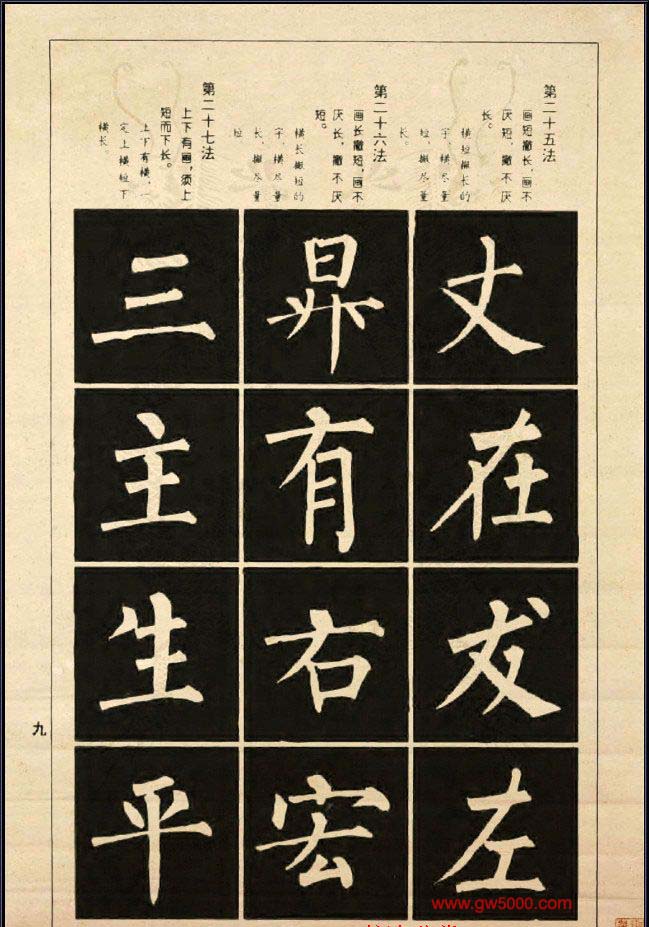 第二十五法
画短撇长,画不
厌短,撇不厌
长。
横短撇长的
字,横尽量
短,撇尽量
长。
丈
在
友
左
第二十六法
画长撇短,画不
厌长,撇不厌
短。
横长撇短的
字,横尽量
长,撇尽量
短
昇
有
右
宏
第二十七法
上下有画,须上
短而下长。
上下有横,一
定上横短下
横长。
三
主
生
平
九
www.gw5000.com